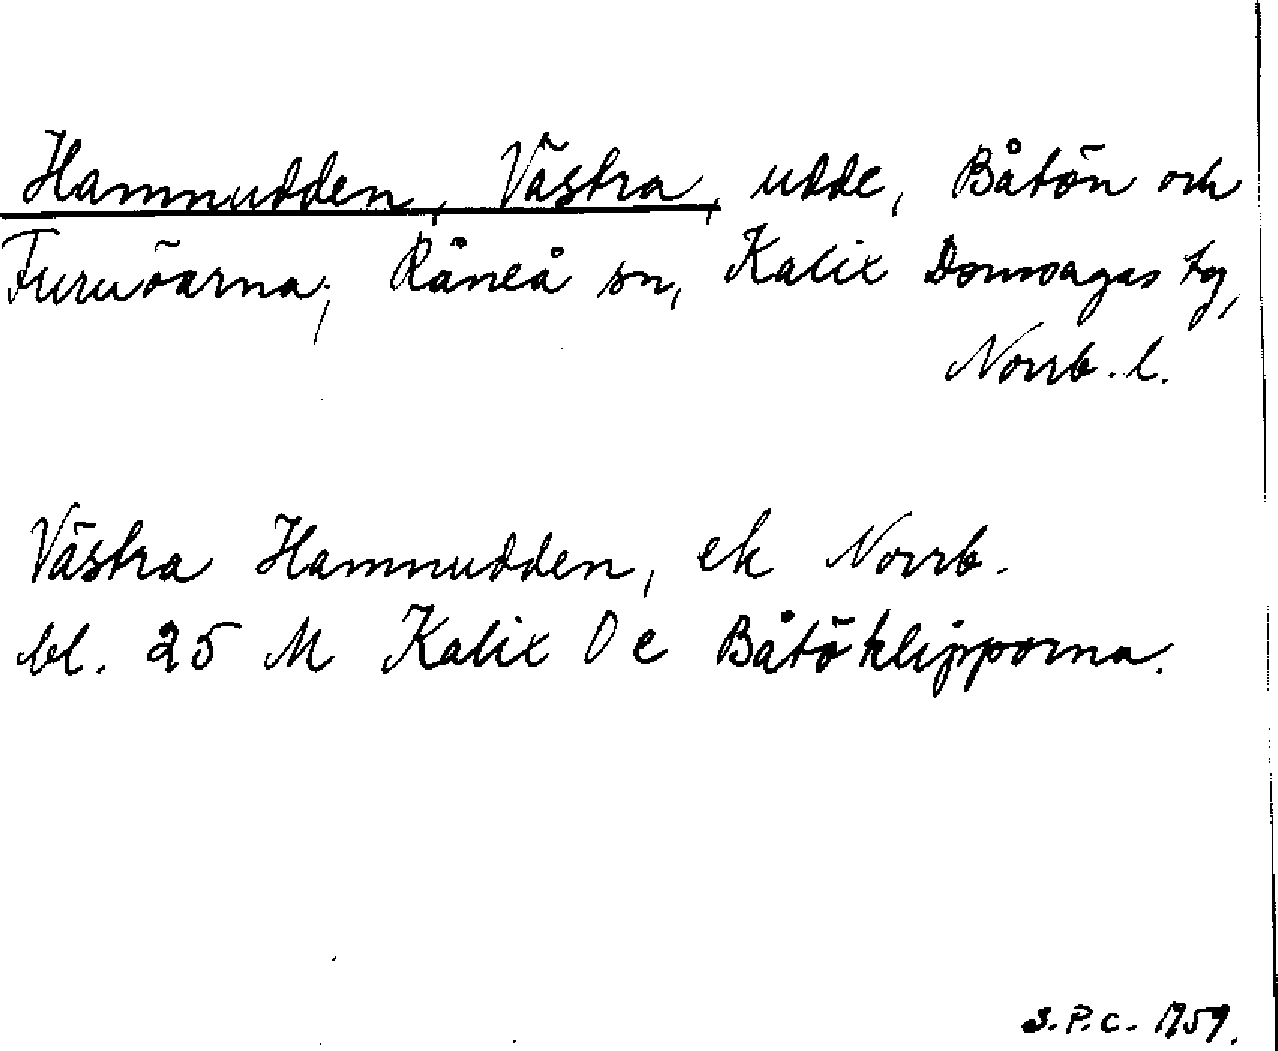 Hamnudden, Västra, udde, Båtön och
Furuöarna, Råneå sn, Kalix Domsagas tg,
Norrb. l.
Västra Hamnudden, ek Norrb.
bl. 25 M Kalix O e Båtöklipporna.
S.P.C. 1959.